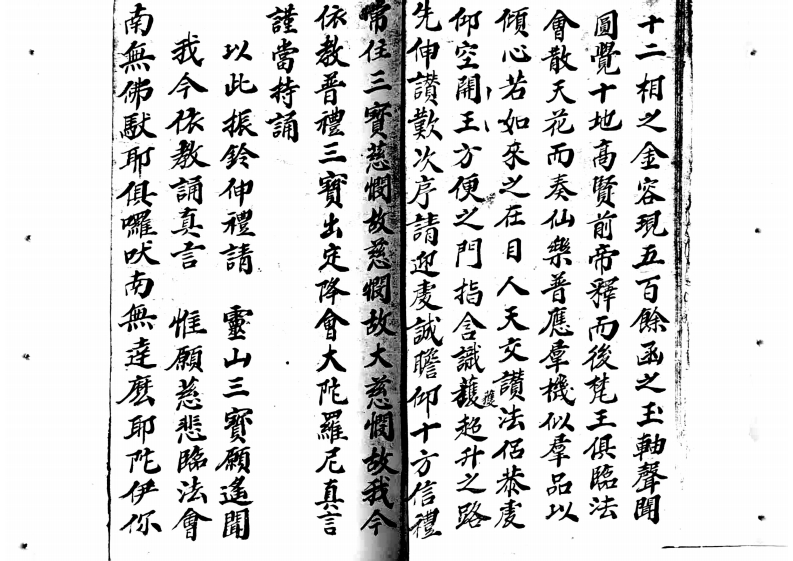 十二相之金容現五百餘函之玉軸聲聞
圓覺十地高賢前帝釋而後梵王俱臨法
會散天花而奏仙樂普應羣機似羣品以
傾心若如來之在目人天交讚法侶恭虔
仰空開王方便之門指含識獲超升之路
先伸讚歎次序請迎虔誠瞻仰十方信禮
常住三寳慈憫故慈憫故大慈憫故我今
依教普禮三寳出定降會大陁羅尼真言
謹當持誦
以此振鈴伸禮請 靈山三寳願遙聞
我今依教誦真言 惟願慈悲臨法會
南無佛馱耶俱囉吠南無達麽耶陁伊你